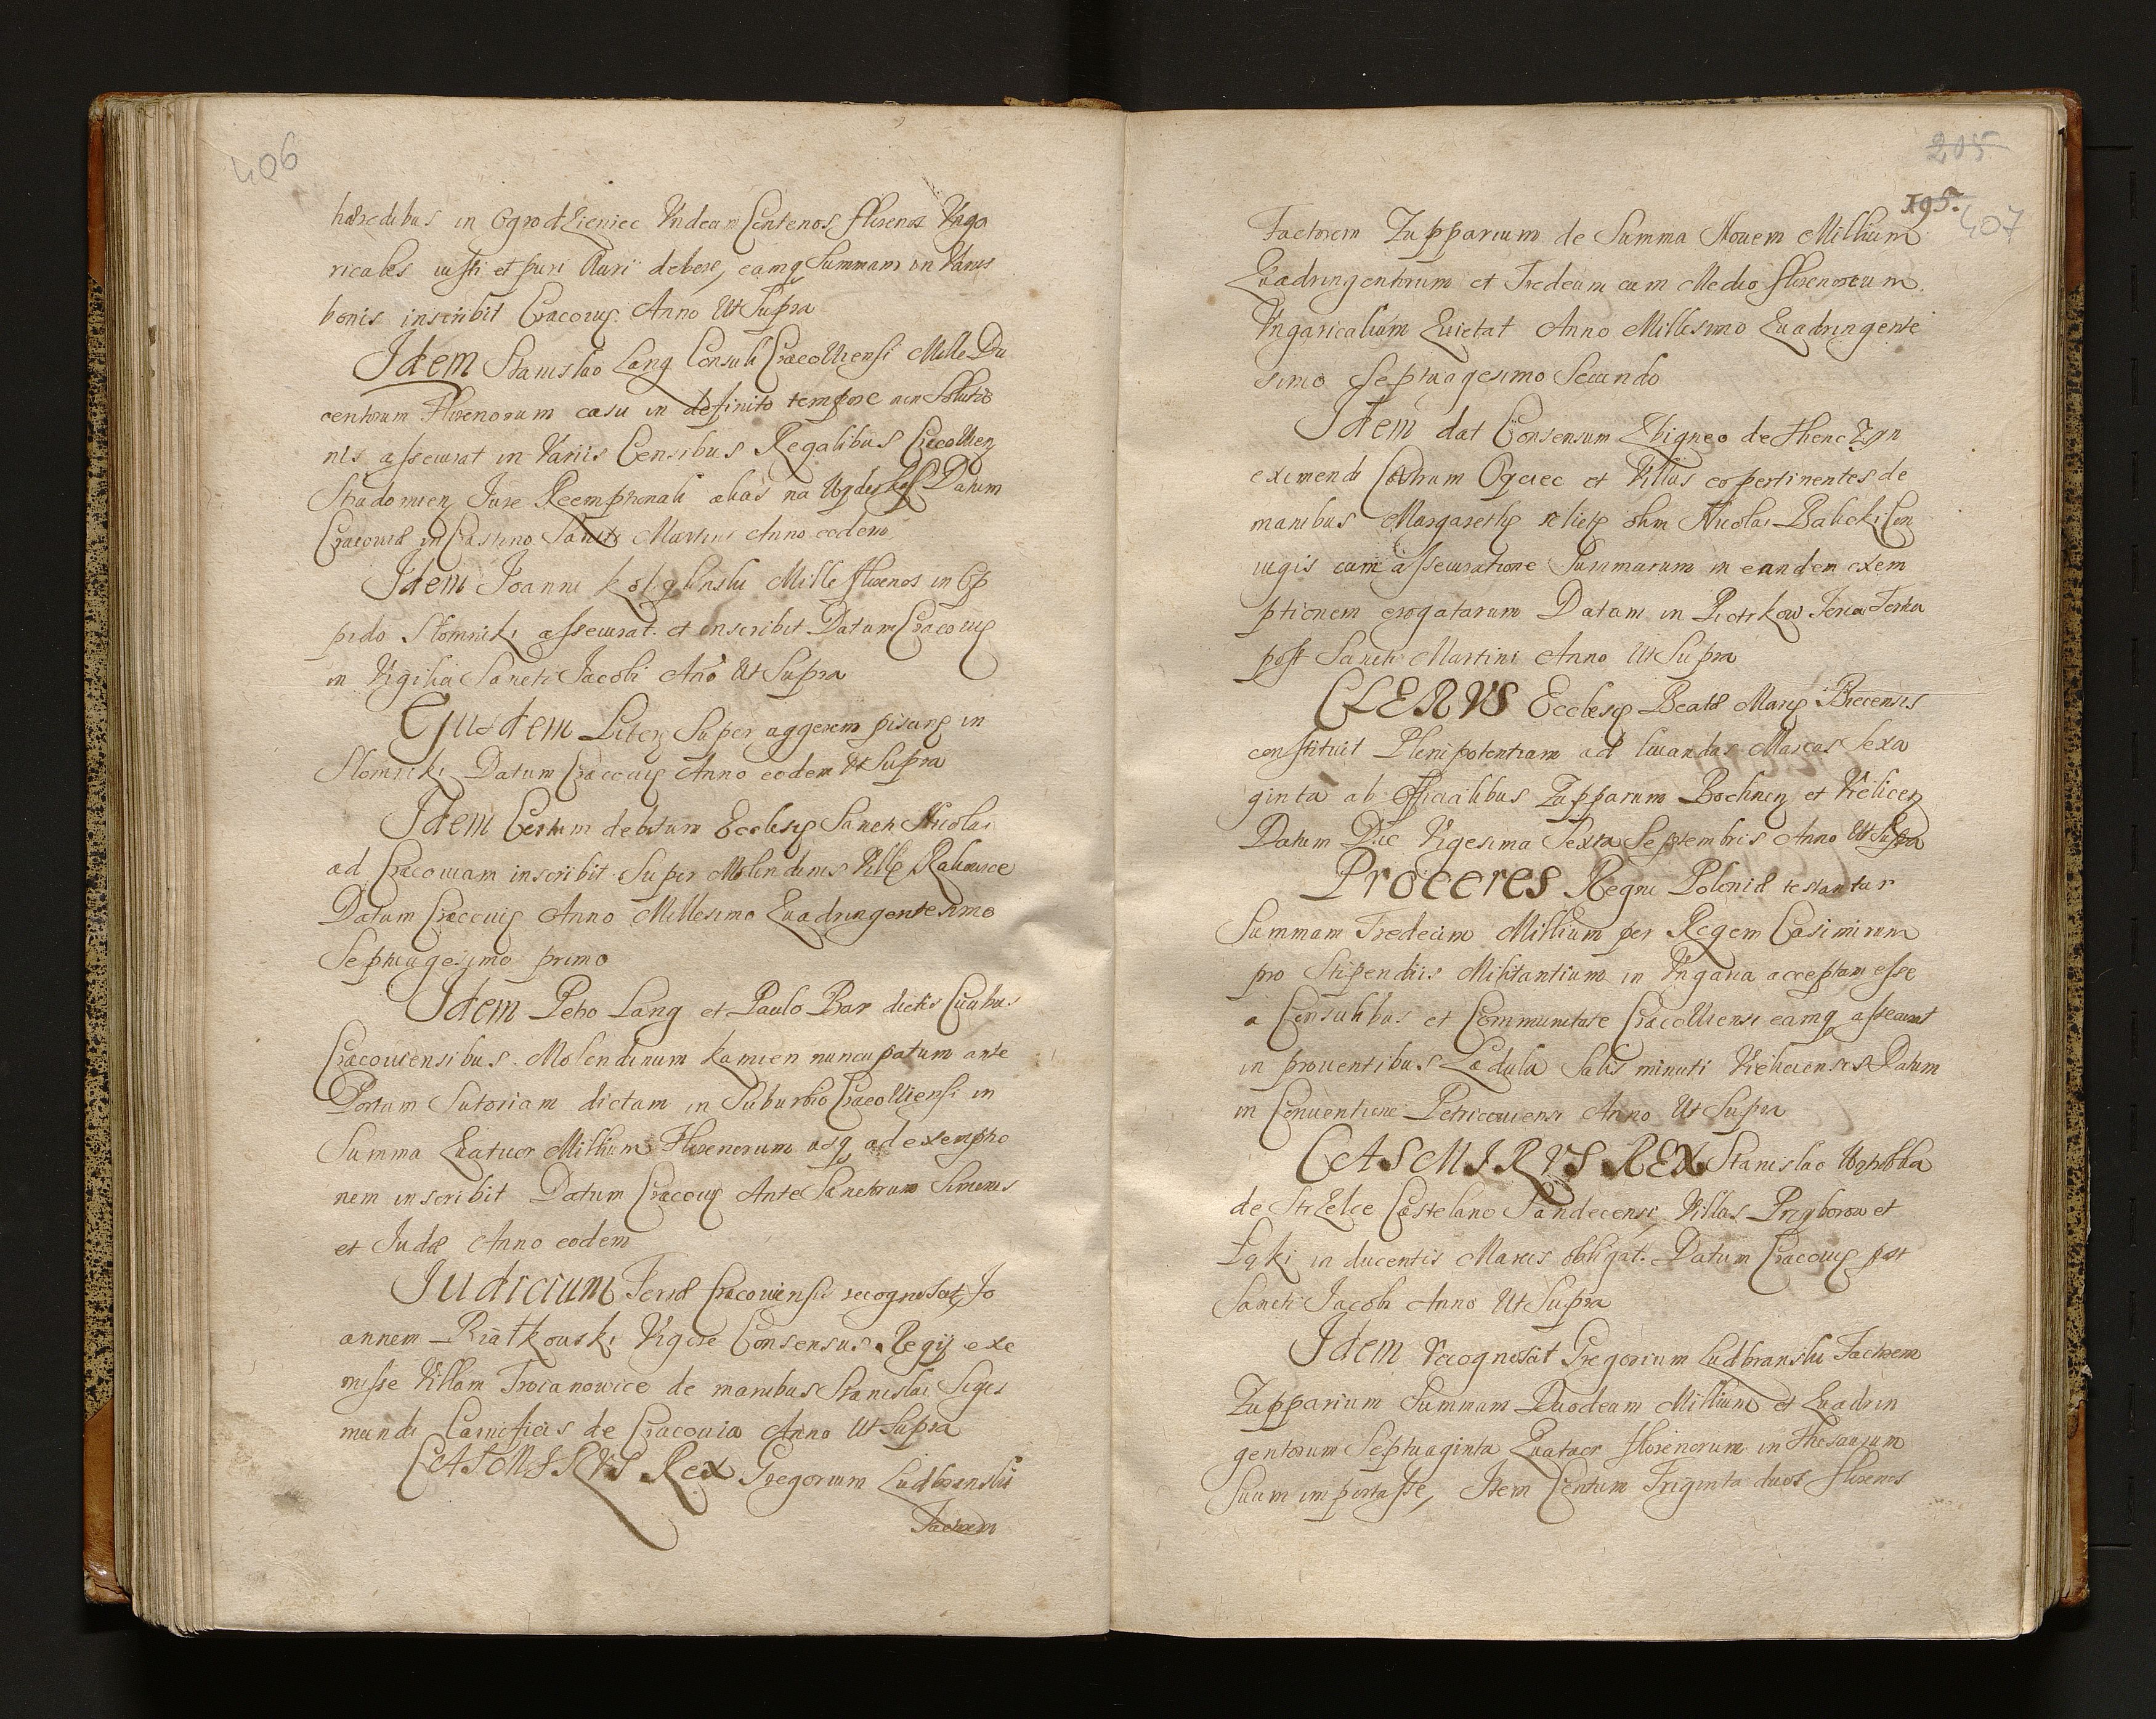 406
hæredibus in Ogrodzieniec Vndecim Centenos florenos Vnga
ricales iusti et puri Auri debere, eamq Summam in Varijs
bonis inscribit Cracouię Anno Vt Supra
Idem Stanislao Lang Consuli Cracouiensi Mille Du
centorum Florenorum casu in definito tempore non Solutio
nis assecurat in Variis Censibus Regalibus Cracouien
Stradomien Jure Reemptionali alias na
Datum
Cracouiæ in Crastino Sancti Martini Anno eodem
Idem Joanni Mille florenos in Op
pido Słomniki assecurat et inscribit Datum Cracouię
in Vigilia Sancti Jacobi Año Vt Supra
Eiusdem Literę Super aggerem piscinę in
Słomniki Datum Cracouię Anno eodem Vt Supra
Idem Certum debitum Ecclesię Sancti Nicolai
ad Cracouiam inscribit Super Molendinis Villę Rakowice
Datum Cracouię Anno Millesimo Quadringentesimo
Septuagesimo primo
Idem Petro Lang et Paulo Bar dictis Ciuibus
Cracouiensibus Molendinum Kamien nuncupatum ante
Portam Sutoriam dictam in Suburbio Cracouiensi in
Summa Quatuor Millium Florenorum usq ad exemptio
nem inscribit Datum Cracouię Ante Sanctorum Simonis
et Judæ Anno eodem
Judicium Terræ Cracouiensis recognoscit Jo
annem Piatkowski Vigore Consensus Regij exe
misse Villam Troianowice de manibus Stanislai Sigis
mundi Carnificis de Cracouia Anno Vt Supra
CASMIRVS Rex Gregorium Ludbranski
Factorem
205
195.
407
Factorem Zupparium de Summa Nouem Millium
Quadringentorum et Tredecim cum Medio florenorum
Vngaricalium Quietat Anno Millesimo Quadringente
simo Septuagesimo Secundo
Idem dat Consensum Zbigneo de Thenczyn
eximendi Castrum Oyciec et Villas eo pertinentes de
manibus Margarethę relictę olim Nicolai Balicki Con
iugis cum assecuratione Summarum in eandem exem
ptionem erogatarum Datum in Piotrkow Feria Tertia
post Sancti Martini Anno Vt Supra
CLERVS Ecclesię Beatæ Marię Biecensis
constituit Plenipotentiam ad leuandas Marcas Sexa
ginta ab Officialibus Zupparum Bochnen et Vielicen
Datum Die Vigesima Sexta Septembris Anno Vt Supra
Proceres Regni Poloniæ testantur
Summam Tredecim Millium per Regem Casimirum
pro Stipendiis Militantium in Vngaria acceptam esse
a Consulibus et Communitate Cracouiensi eamq assecurat
in prouentibus Salis minuti Vieliciensis Datum
in Conuentione Petricouiensi Anno Vt Supra
CASMIRVS REX Stanislao
de Strzelce Castelano Sandecensi Villas Przyborow et
Łąki in ducentis Marcis obligat. Datum Cracouię post
Sancti Jacobi Anno Vt Supra
Idem recognoscit Gregorium Ludbranski Factorem
Zupparium Summam Duodecim Millium et Quadrin
gentorum Septuaginta Quatuor florenorum in Thesaurum
Suum importasse, Item Centum Triginta duos florenos